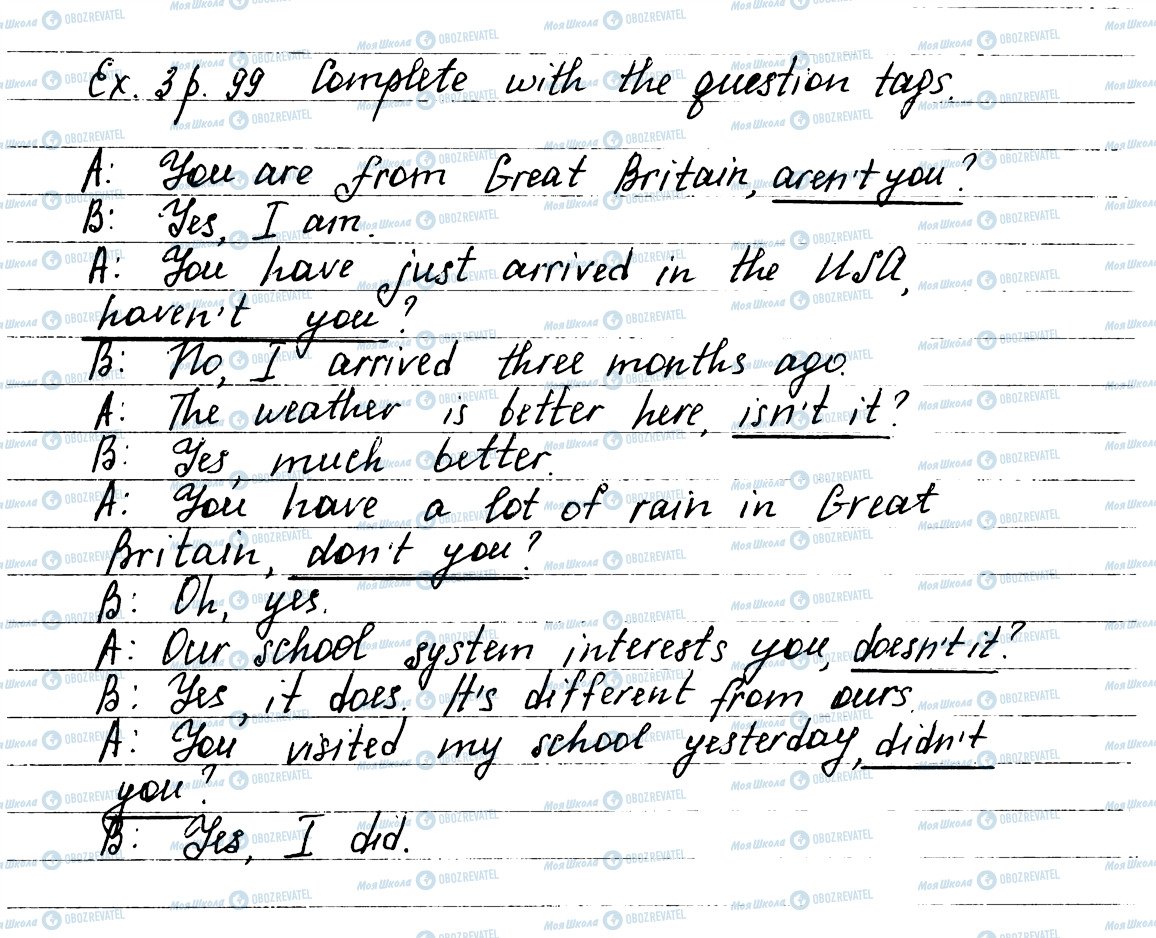 Ex. 3 p. 99 Complete with the question tags.
A: You are from Great Britain, aren't you?
B: Yes, I am.
A: You have just arrived in the USA,
haven't you?
B: No, I arrived three months ago.
A: The weather is better here, isn't it?
B: Yes, much better.
A: You have a lot of rain in Great
Britain, don't you?
B: Oh, yes.
A: Our school system interests you, doesn't it?
B: Yes, it does. It's different from ours.
A: You visited my school yesterday, didn't
you?
B: Yes, I did.
Моя Школа OBOZREVATEL